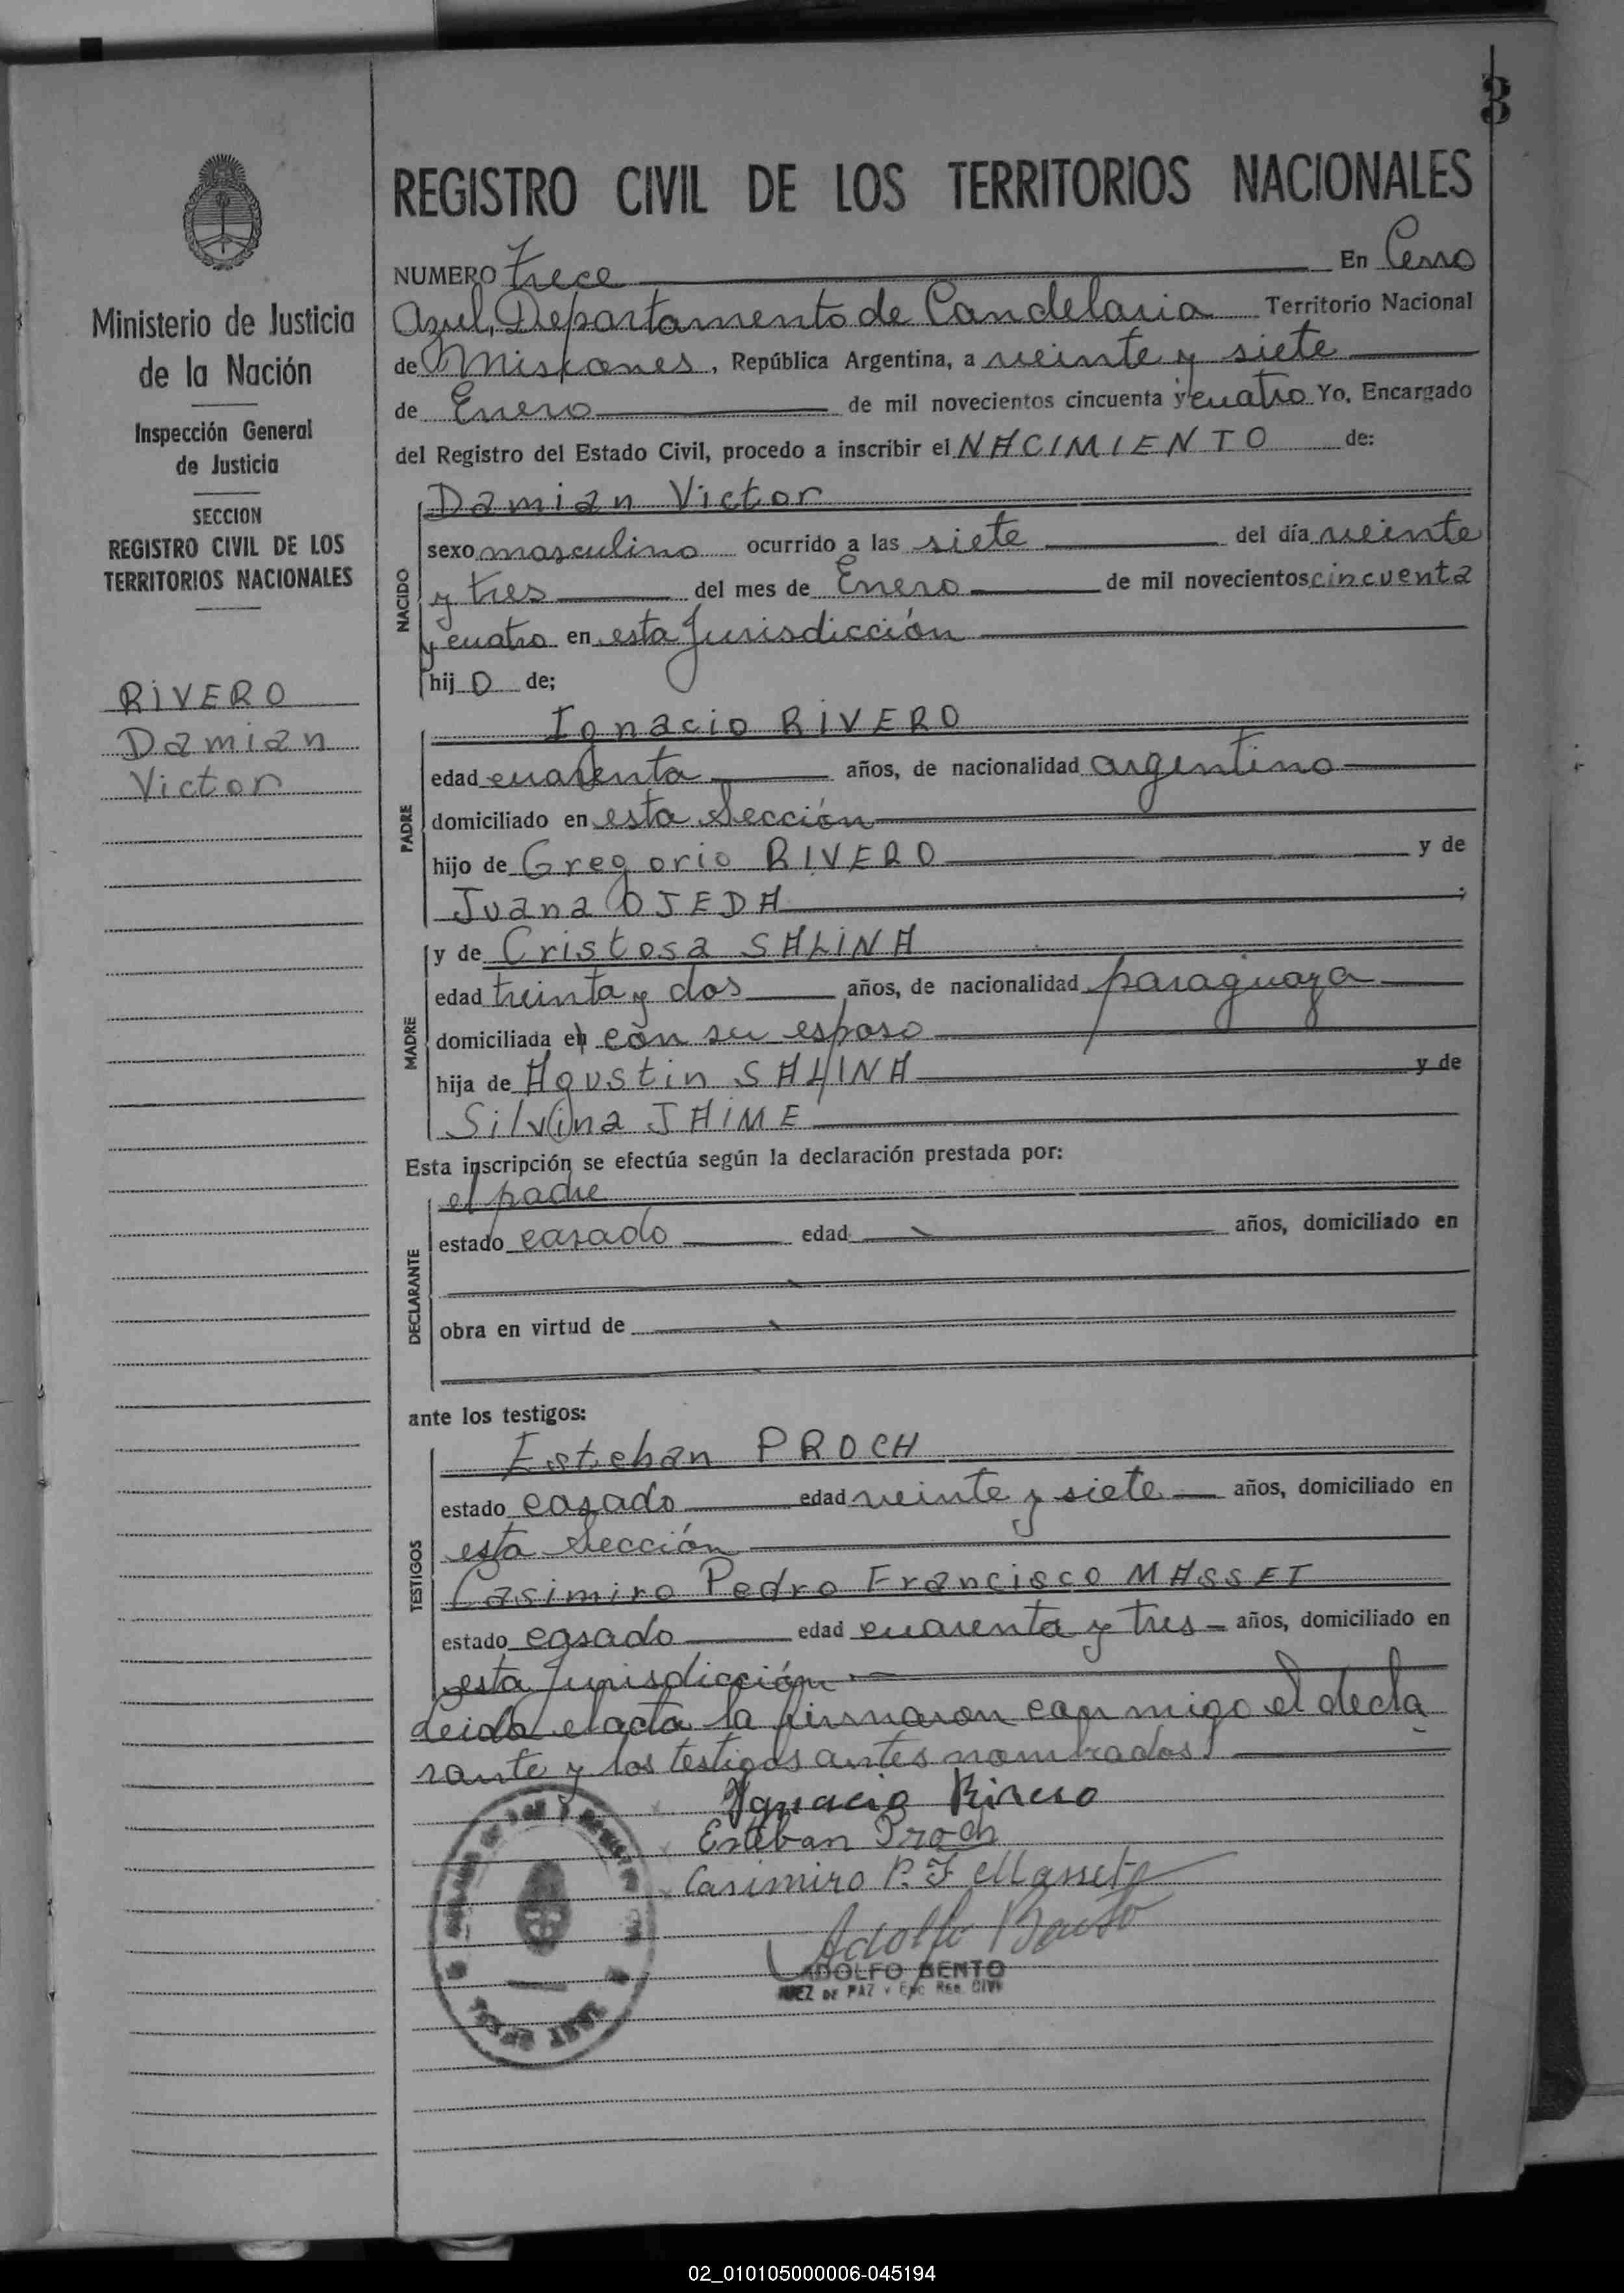 3
REGISTRO CIVIL DE LOS TERRITORIOS NACIONALES
NUMERO trece En Cerro
Azul, Departamento de Candelaria Territorio Nacional
de Misiones, República Argentina, a veinte y siete
de Enero de mil novecientos cincuenta y cuatro Yo, Encargado
del Registro del Estado Civil, procedo a inscribir el NACIMIENTO de:
Ministerio de Justicia
de la Nación
Inspección General
de Justicia
SECCION
REGISTRO CIVIL DE LOS
TERRITORIOS NACIONALES
RIVERO
Damian
Victor
NACIDO
Damian Victor
sexo masculino ocurrido a las siete del día veinte
y tres del mes de Enero de mil novecientos cincuenta
y cuatro en esta Jurisdicción
hijo de;
PADRE
Ignacio RIVERO
edad cuarenta años, de nacionalidad argentino
domiciliado en esta Sección
hijo de Gregorio RIVERO y de
Juana OJEDA ;
MADRE
y de Cristosa SALINA
edad treinta y dos años, de nacionalidad paraguaya
domiciliada en con su esposo
hija de Agustin SALINA y de
Silvina JAIME
Esta inscripción se efectúa según la declaración prestada por:
DECLARANTE
el padre
estado casado edad años, domiciliado en
obra en virtud de
ante los testigos:
TESTIGOS
Esteban PROCH
estado casado edad veinte y siete años, domiciliado en
esta Sección
Casimiro Pedro Francisco MASSET
estado casado edad cuarenta y tres años, domiciliado en
esta Jurisdicción
Leida el acta la firmaron con migo el decla
rante y los testigos antes nombrados.
Ignacio Rivero
Esteban Proch
Casimiro P. F. Massett
Adolfo Bento
ADOLFO BENTO
JUEZ DE PAZ Y ENC REG. CIVIL
02_010105000006-045194